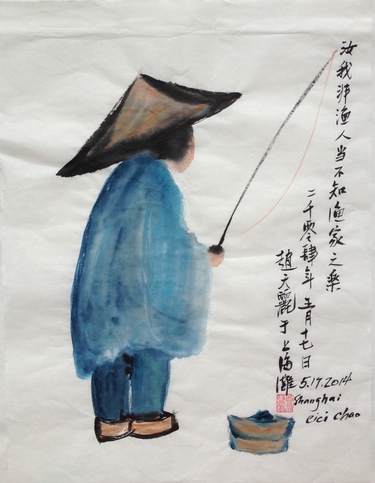 汝我非渔人当不知渔家之乐
二千零肆年五月十七日
趙天麗于上海灘
5.17.2014
Shanghai
cici chao